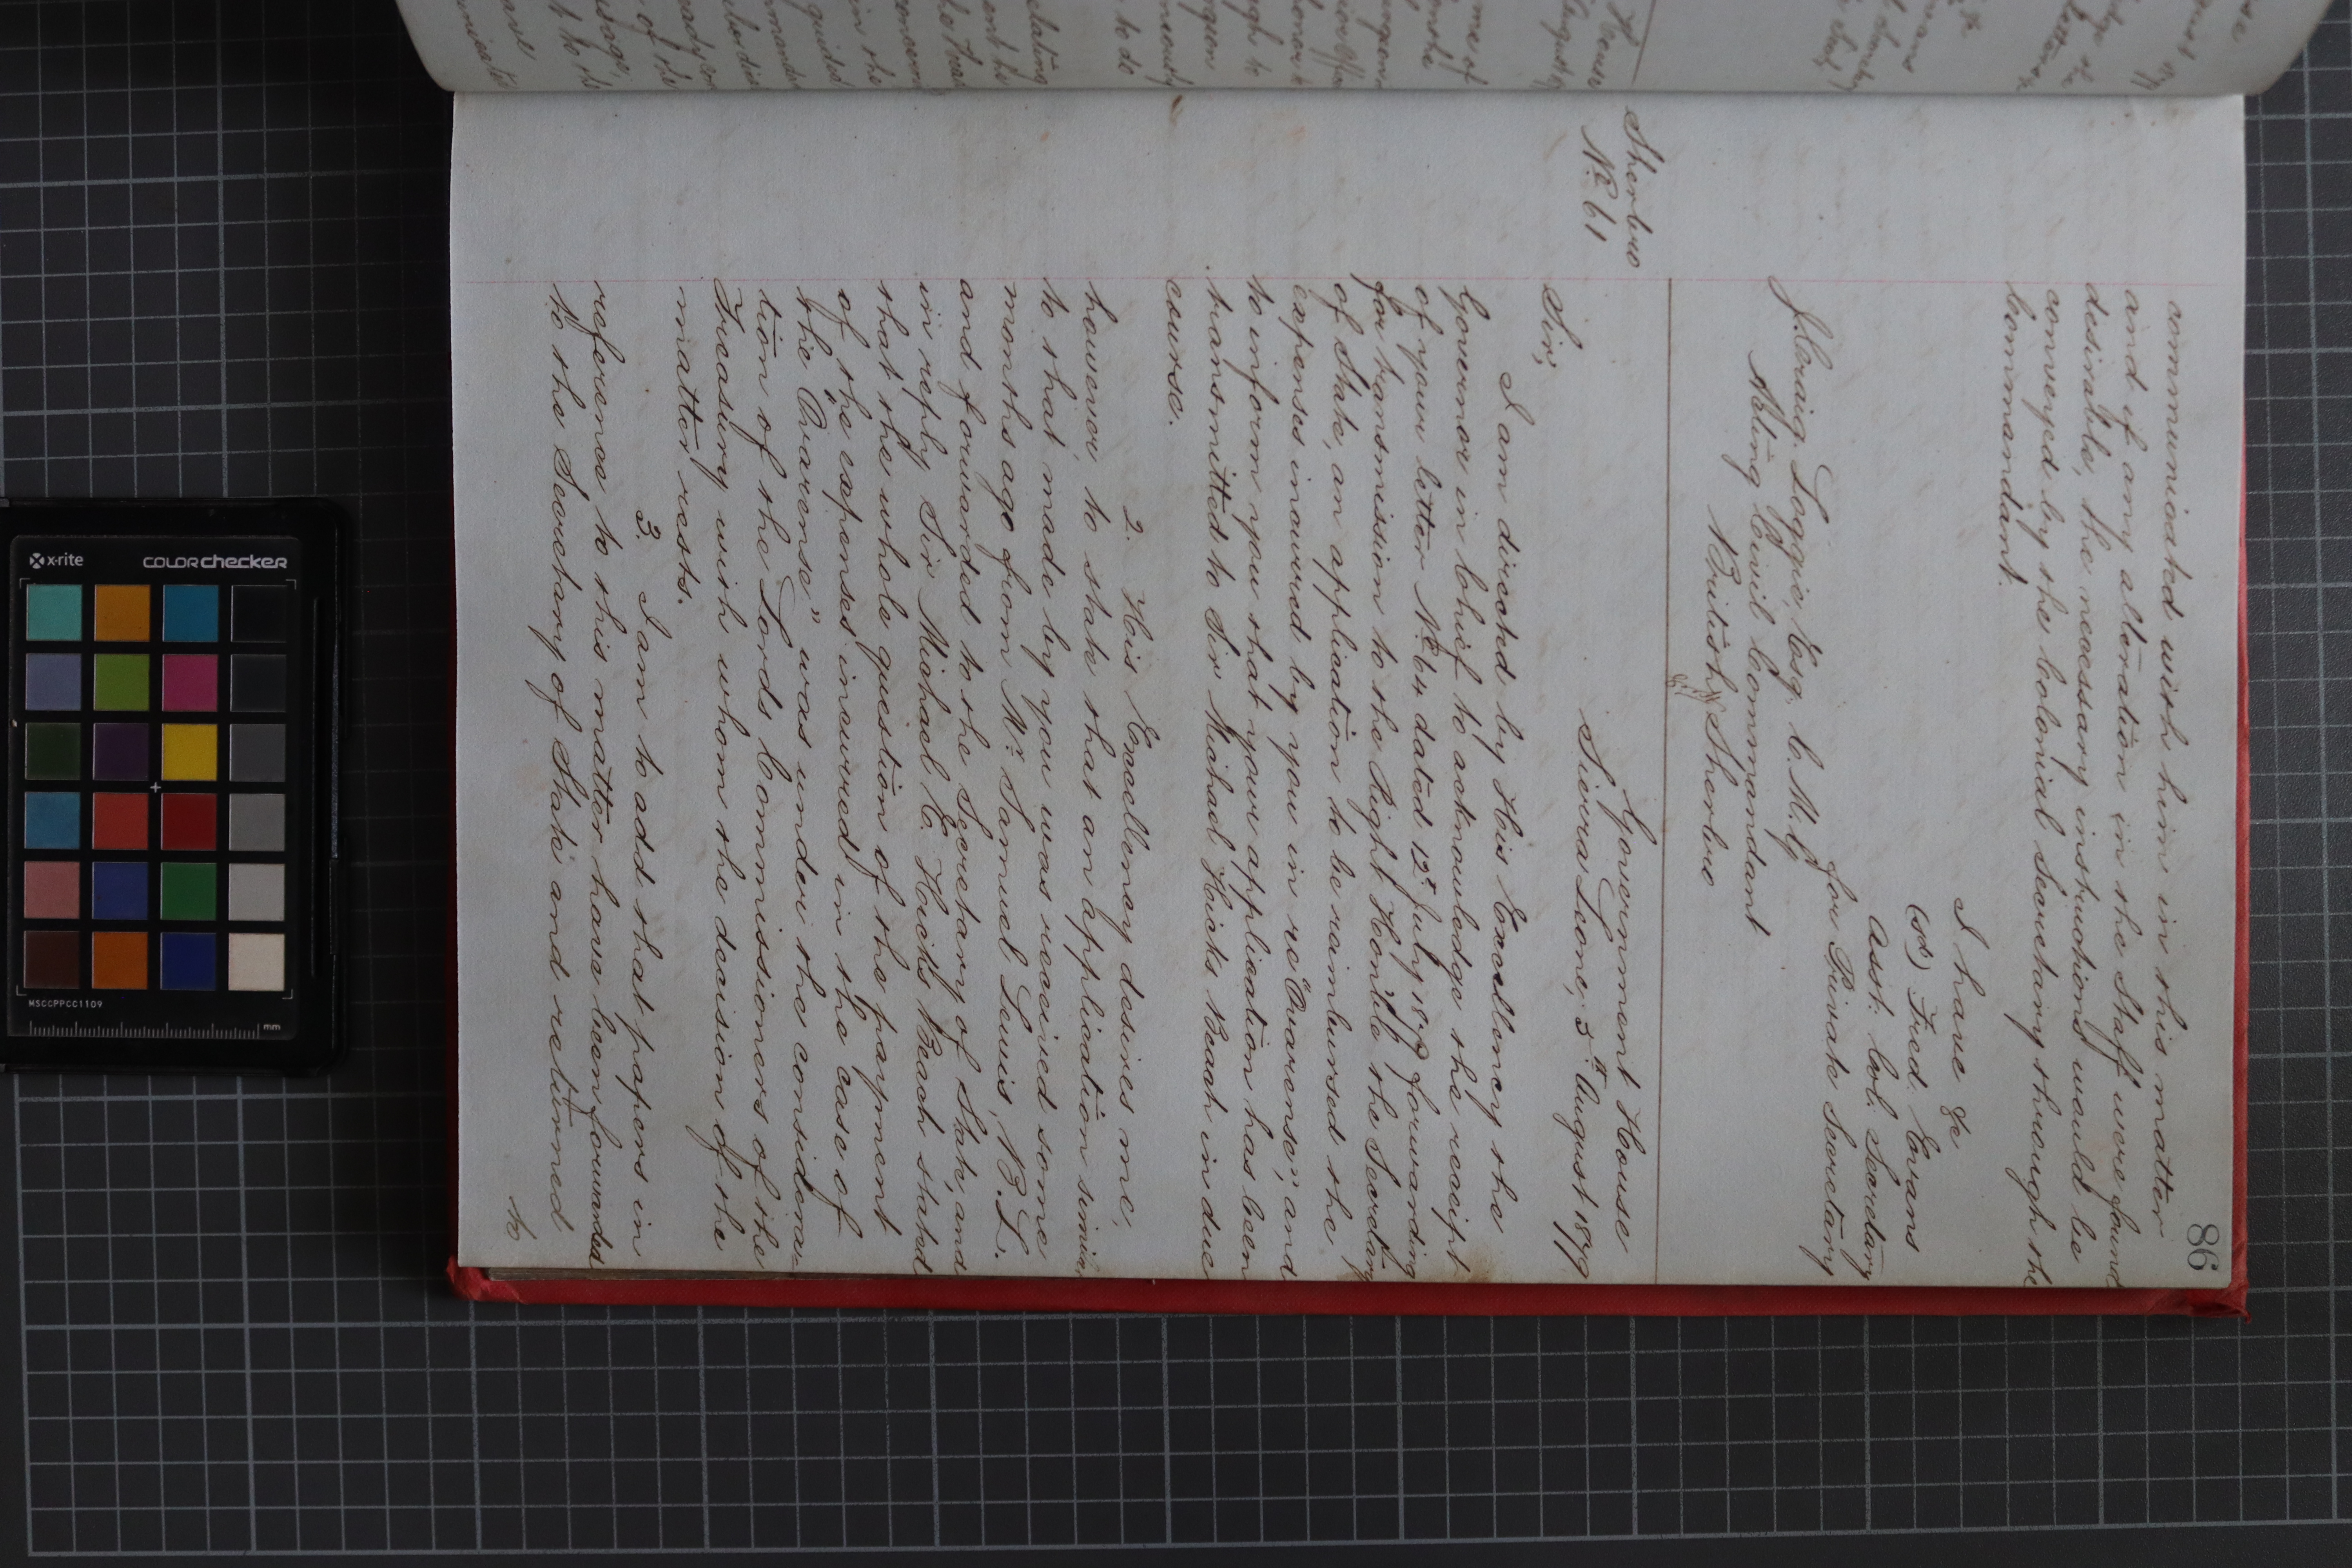 86
communicated with him in this matter
and if any alteration in the Staff were found
desirable, the necessary instructions would be
conveyed by the Colonial Secretary through the
Commandant.
I have &c
(sd) Fred. Evans
Asst. Col. Secretary
for Private Secretary
J. Craig Loggie, Esq. C.M.G.
Acting Civil Commandant
British Sherbro
Sherbro
No. 61
Government House
Sierra Leone, 5th August 1879
Sir,
I am directed by His Excellency the
Governor in Chief to acknowledge the receipt
of your letter No. 64 dated 12th July 1879 forwarding
for transmission to the Right Honble the Secretary
of State, an application to be reimbursed the
expenses incurred by you in re "Ovarense", and
to inform you that your application has been
transmitted to Sir Michael Hicks Beach in due
course.
2. His Excellency desires me,
however to state that an application similar
to that made by you was received some
months ago from Mr. Samuel Lewis, B.L.
and forwarded to the Secretary of State, and
in reply Sir Michael E. Hicks Beach stated
that the whole question of the payment
of the expenses incurred in the case of
the "Ovarense" was under the considera-
tion of the Lords Commissioners of the
Treasury with whom the decision of the
matter rests.
3. I am to add that papers in
reference to this matter have been forwarded
to the Secretary of State and returned
to
x-rite
colorchecker
MSCCPPCC1109
mm